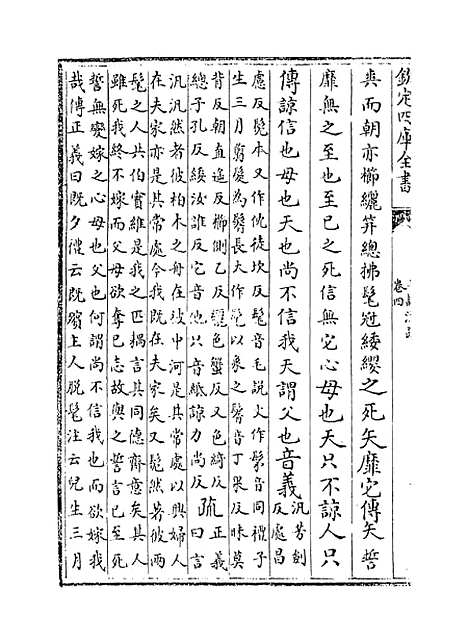 欽定四庫全書
卷四
喪而朝亦櫛纚笄總拂髦冠緌纓之死矢靡它傳矢誓
靡無之至也至已之死信無它心母也天只不諒人只
傳諒信也母也天也尚不信我天謂父也音義
汎芳劔
反處昌
慮反髧本又作㐲徒坎反髦音毛說文作髳音同禮子
生三月翦髮為鬌長大作髦以象之鬌音丁果反昧莫
背反朝直遙反櫛側乙反纚色蟹反又色綺反
總子孔反緌汝誰反它音他只音紙諒力尚反
疏
正義
曰言
汎汎然者彼柏木之舟在彼中河是其常處以興婦人
在夫家亦是其常處今我既在夫家矣又髧然著彼兩
髦之人共伯實維是我之匹耦言其同德齊意矣其人
雖死我終不嫁而父母欲奪己志故與之誓言己至死
誓無變嫁之心母也父也何謂尚不信我也而欲嫁我
哉傳正義曰既夕禮云既殯主人脫髦注云兒生三月